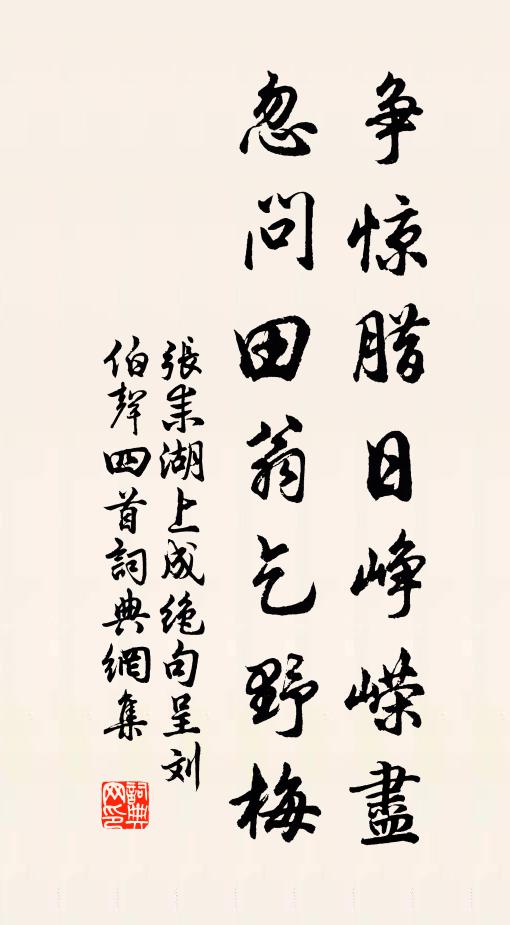 争惊腊日峥嵘盡
忽问田翁乞野梅
張耒湖上成绝句呈刘
伯聲四首詞典網集
詞典网印